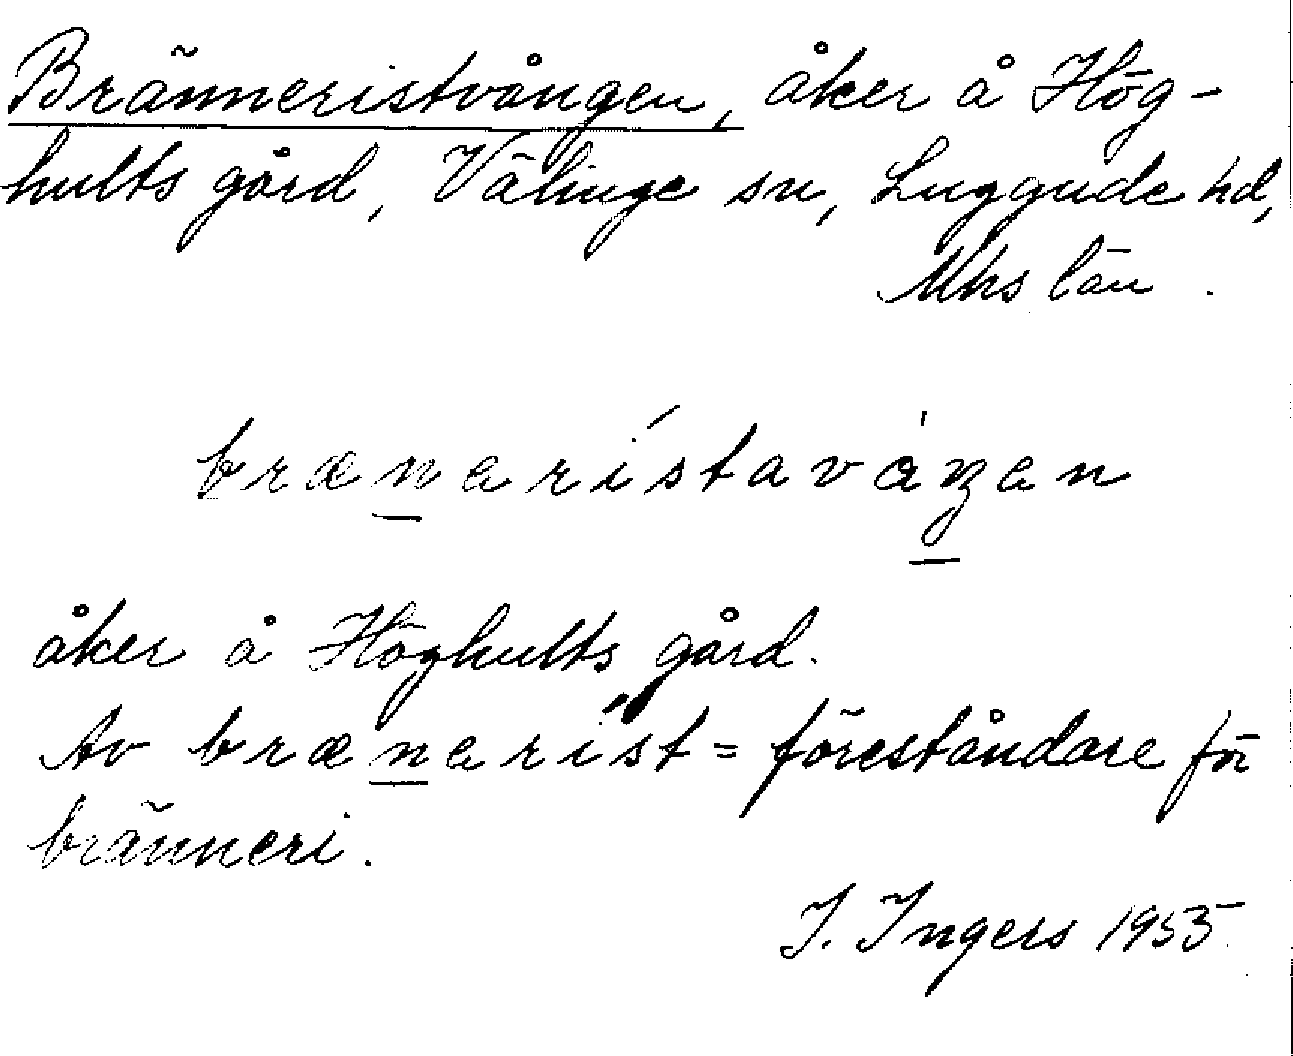 Bränneristvången, åker å Hög-
hults gård, Välinge sn, Luggude hd,
Mhs län.
brænarístavåŋen
åker å Höghults gård.
Av brænaríst = föreståndare för
bränneri.
I. Ingers 1955.